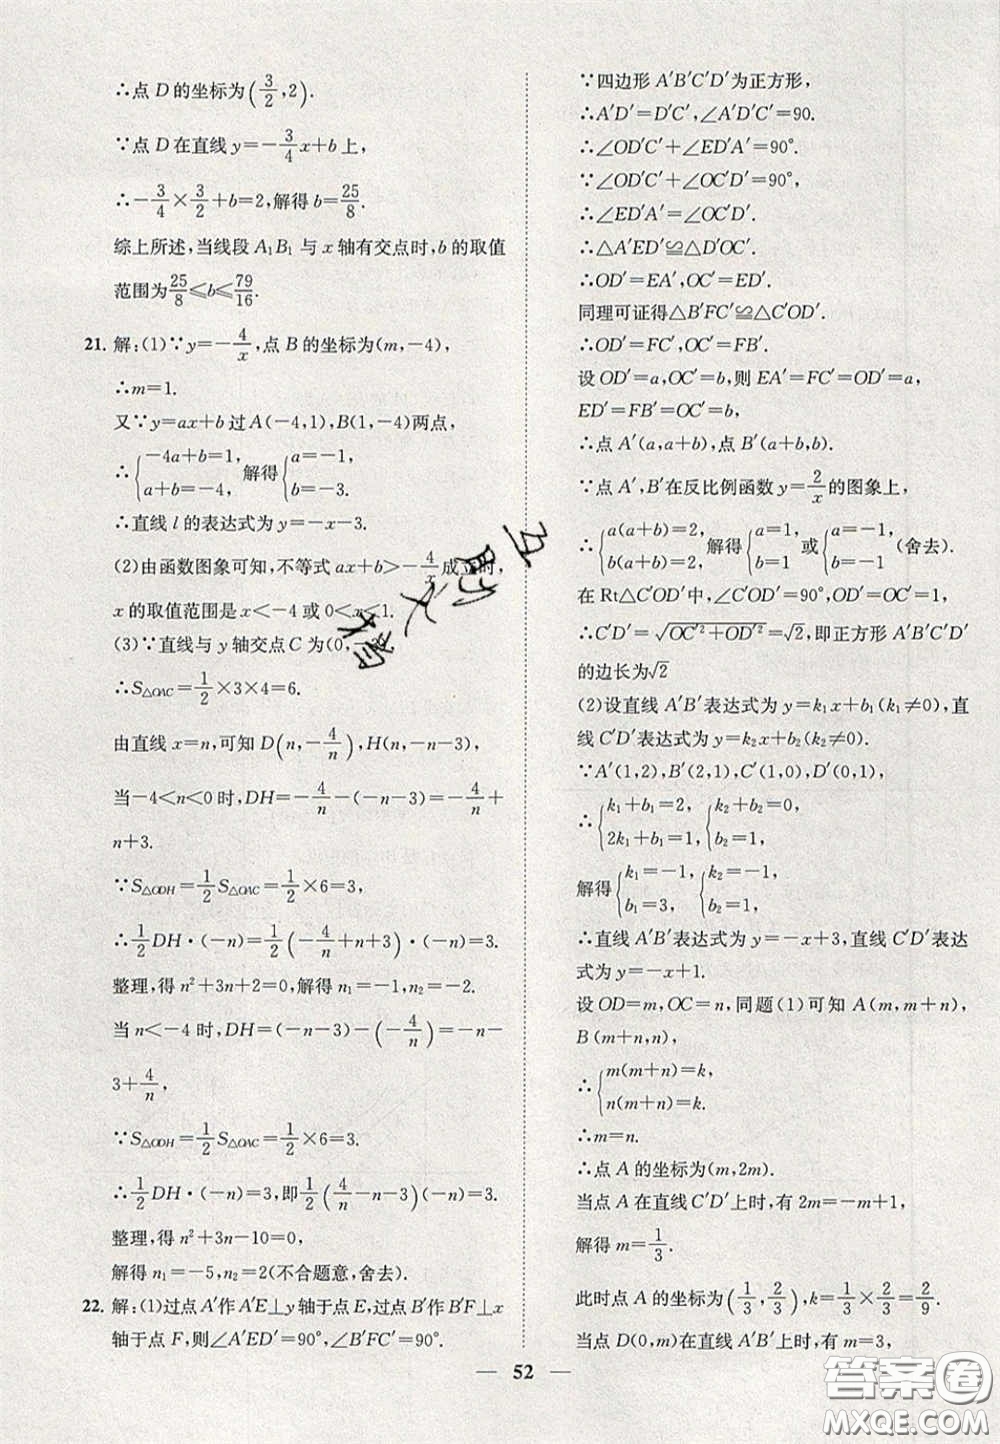 ∴点 D 的坐标为(3/2,2).
∵点 D 在直线 y=-3/4x+b 上,
∴-3/4×3/2+b=2,解得 b=25/8.
综上所述,当线段 A₁B₁ 与 x 轴有交点时,b 的取值
范围为25/8≤b≤79/16.
21. 解:(1)∵y=-4/x,点 B 的坐标为(m,-4),
∴m=1.
又∵y=ax+b 过 A(-4,1),B(1,-4)两点,
∴{-4a+b=1, a+b=-4, 解得{a=-1, b=-3.
∴直线 l 的表达式为 y=-x-3.
(2)由函数图象可知,不等式 ax+b>-4/x成立时,
x 的取值范围是 x<-4 或 0<x<1.
(3)∵直线与 y 轴交点 C 为(0,
∴S△OAC=1/2×3×4=6.
由直线 x=n,可知 D(n,-4/n),H(n,-n-3),
当-4<n<0 时,DH=-4/n-(-n-3)=-4/n+
n+3.
∵S△ODH=1/2S△OAC=1/2×6=3,
∴1/2DH·(-n)=1/2(-4/n+n+3)·(-n)=3.
整理,得 n²+3n+2=0,解得 n₁=-1,n₂=-2.
当 n<-4 时,DH=(-n-3)-(-4/n)=-n-
3+4/n,
∵S△ODH=1/2S△OAC=1/2×6=3.
∴1/2DH·(-n)=3,即1/2(4/n-n-3)(-n)=3.
整理,得 n²+3n-10=0,
解得 n₁=-5,n₂=2(不合题意,舍去).
22. 解:(1)过点 A′作 A′E⊥y 轴于点 E,过点 B′作 B′F⊥x
轴于点 F,则∠A′ED′=90°,∠B′FC′=90°.
∵四边形 A′B′C′D′为正方形,
∴A′D′=D′C′,∠A′D′C′=90.
∴∠OD′C′+∠ED′A′=90°.
∵∠OD′C′+∠OC′D′=90°,
∴∠ED′A′=∠OC′D′.
∴△A′ED′≌△D′OC′.
∴OD′=EA′,OC′=ED′.
同理可证得△B′FC′≌△C′OD′.
∴OD′=FC′,OC′=FB′.
设 OD′=a,OC′=b,则 EA′=FC′=OD′=a,
ED′=FB′=OC′=b,
∴点 A′(a,a+b),点 B′(a+b,b).
∵点 A′,B′在反比例函数 y=2/x的图象上,
∴{a(a+b)=2, b(a+b)=2, 解得{a=1, b=1 或{a=-1, b=-1 (舍去).
在 Rt△C′OD′中,∠C′OD′=90°,OD′=OC′=1,
∴C′D′=√(OC′²+OD′²)=√2,即正方形 A′B′C′D′
的边长为√2
(2)设直线 A′B′表达式为 y=k₁x+b₁(k₁≠0),直
线 C′D′表达式为 y=k₂x+b₂(k₂≠0).
∵A′(1,2),B′(2,1),C′(1,0),D′(0,1),
∴{k₁+b₁=2, 2k₁+b₁=1, {k₂+b₂=0, b₂=1,
解得{k₁=-1, b₁=3, {k₂=-1, b₂=1.
∴直线 A′B′表达式为 y=-x+3,直线 C′D′表达
式为 y=-x+1.
设 OD=m,OC=n,同题(1)可知 A(m,m+n),
B(m+n,n),
∴{m(m+n)=k, n(m+n)=k.
∴m=n.
∴点 A 的坐标为(m,2m).
当点 A 在直线 C′D′上时,有 2m=-m+1,
解得 m=1/3.
此时点 A 的坐标为(1/3,2/3),k=1/3×2/3=2/9.
当点 D(0,m)在直线 A′B′上时,有 m=3,
52
互助文档
答案圈
MXQE.COM